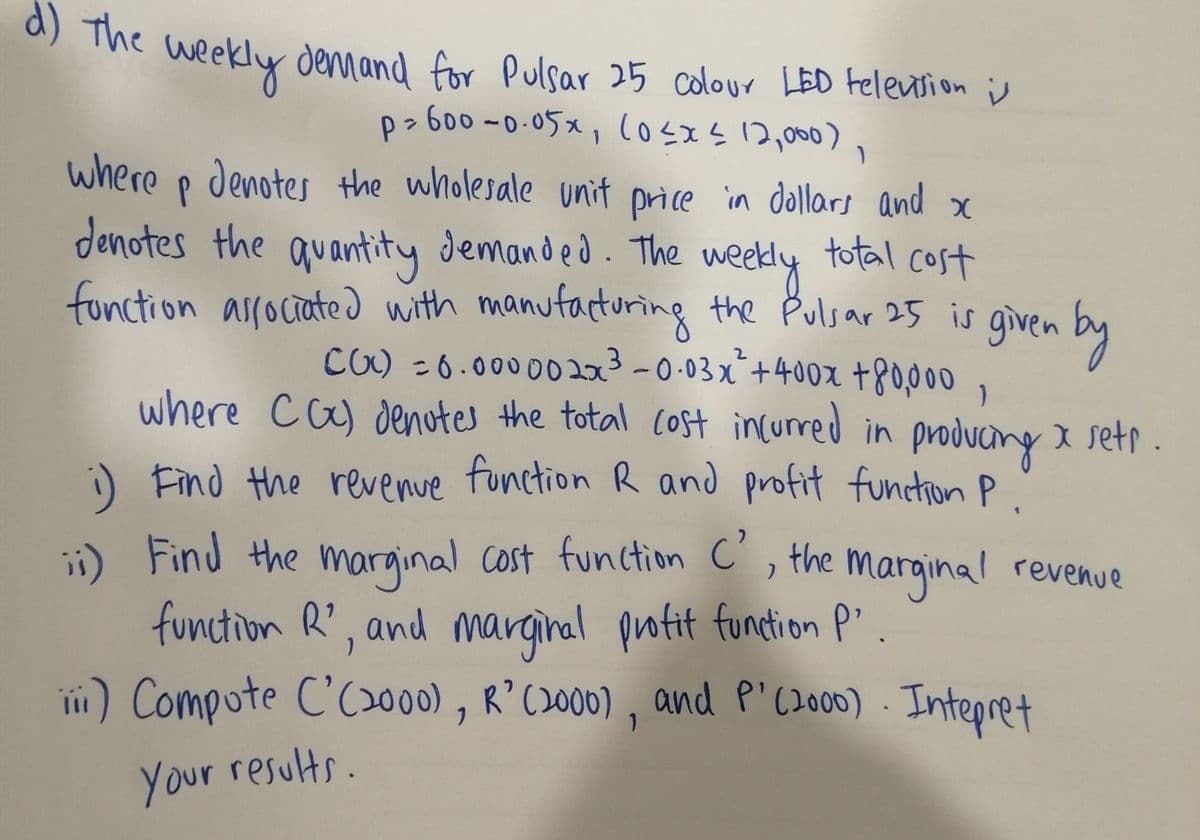 d) The weekly demand for Pulsar 25 colour LED television is
p = 600 - 0.05x, (0 ≤ x ≤ 12,000),
where p denotes the wholesale unit price in dollars and x
denotes the quantity demanded. The weekly total cost
function associated with manufacturing the Pulsar 25 is given by
C(x) = 0.000002x³ - 0.03x² + 400x + 80,000,
where C(x) denotes the total cost incurred in producing x sets.
i) Find the revenue function R and profit function P.
ii) Find the marginal cost function C', the marginal revenue
function R', and marginal profit function P'.
iii) Compute C'(2000), R'(2000), and P'(2000). Intepret
your results.